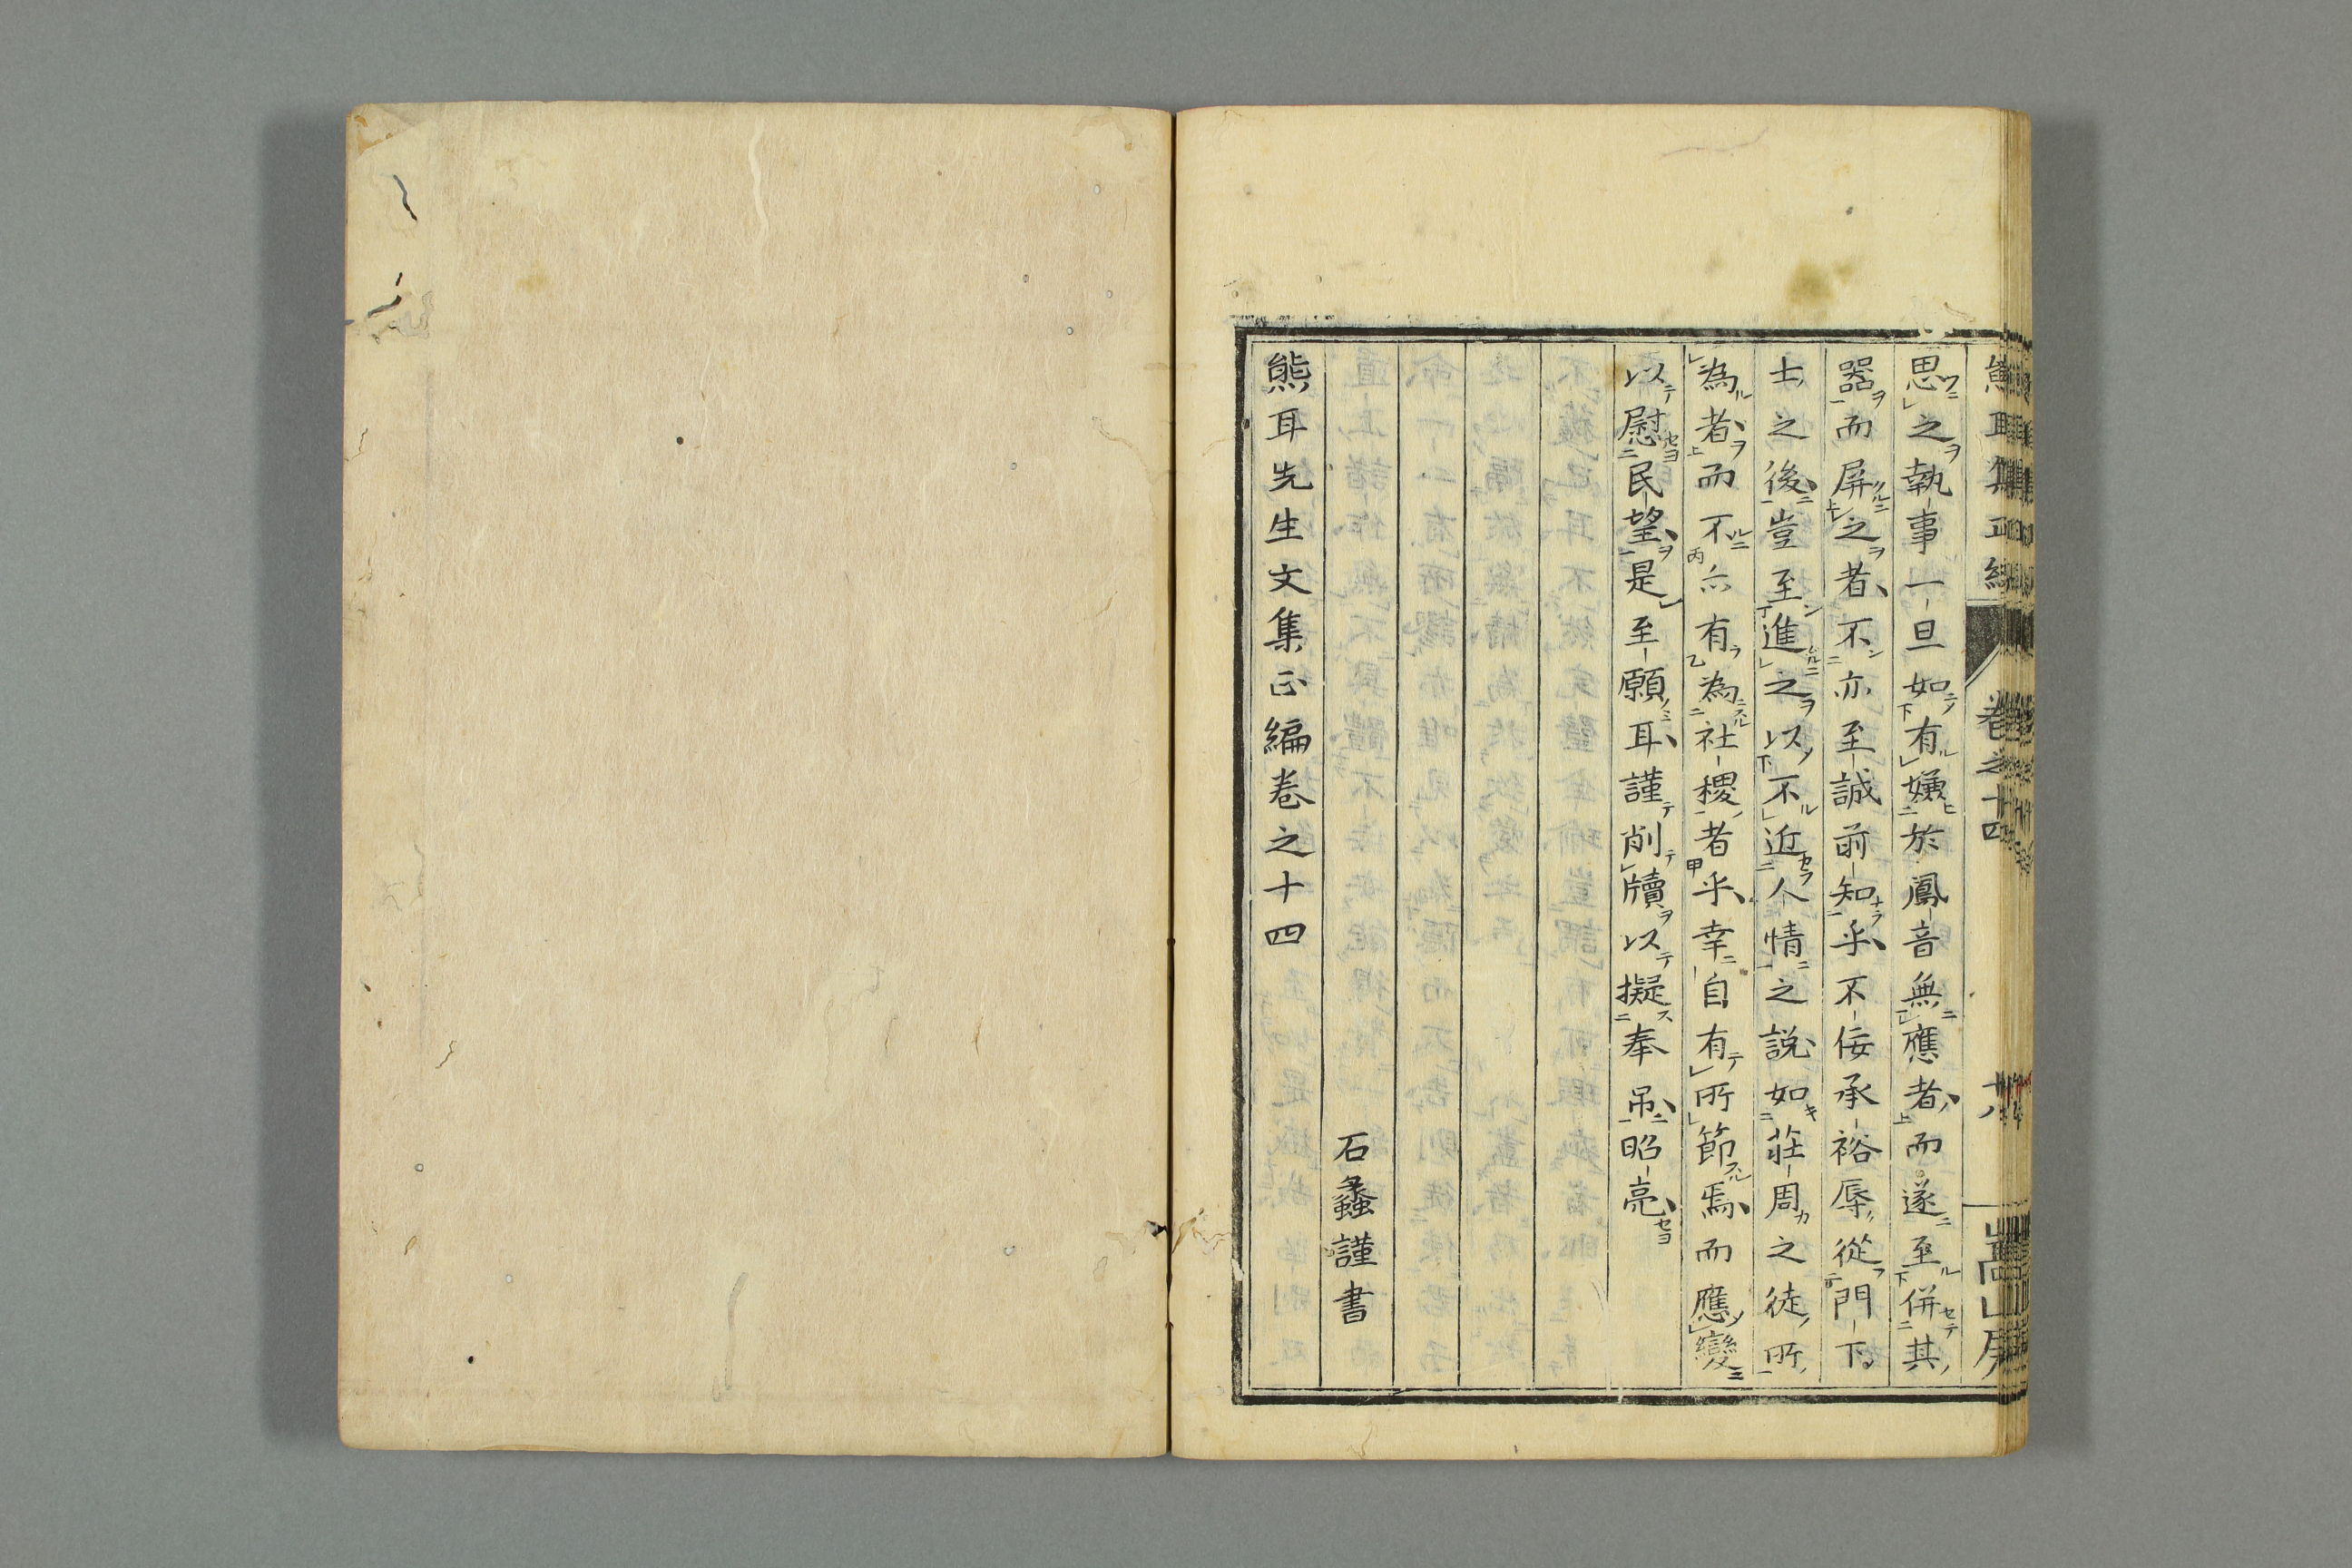 思之執事一旦如有嫌於鳳音無應者而遂至併其
器而屏之者不亦至誠前知乎不佞承裕辱從門下
士之後豈至進之以不近人情之說如莊周之徒所
為者而不亦有為社稷者乎幸自有所節焉而應變
以慰民望是至願耳謹削牘以擬奉吊昭亮
石蠡謹書
熊耳先生文集正編卷之十四